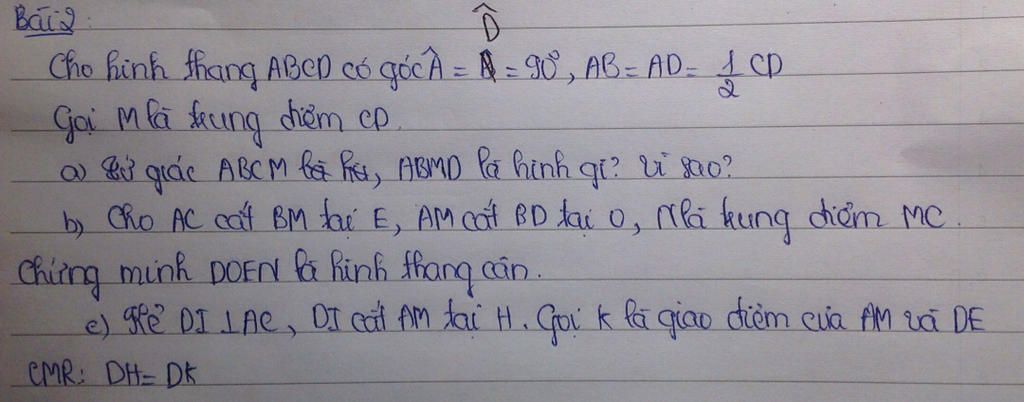 Bài 2:
D̂
Cho hình thang ABCD có góc Â = = 90°, AB = AD = 1/2 CD
Gọi M là trung điểm CD.
a) Tứ giác ABCM, ABMD là hình gì? Vì sao?
b) Cho AC cắt BM tại E, AM cắt BD tại O, N là trung điểm MC.
Chứng minh DOEN là hình thang cân.
c) Kẻ DI ⊥ AC, DI cắt AM tại H. Gọi K là giao điểm của AM và DE
CMR: DH = DK